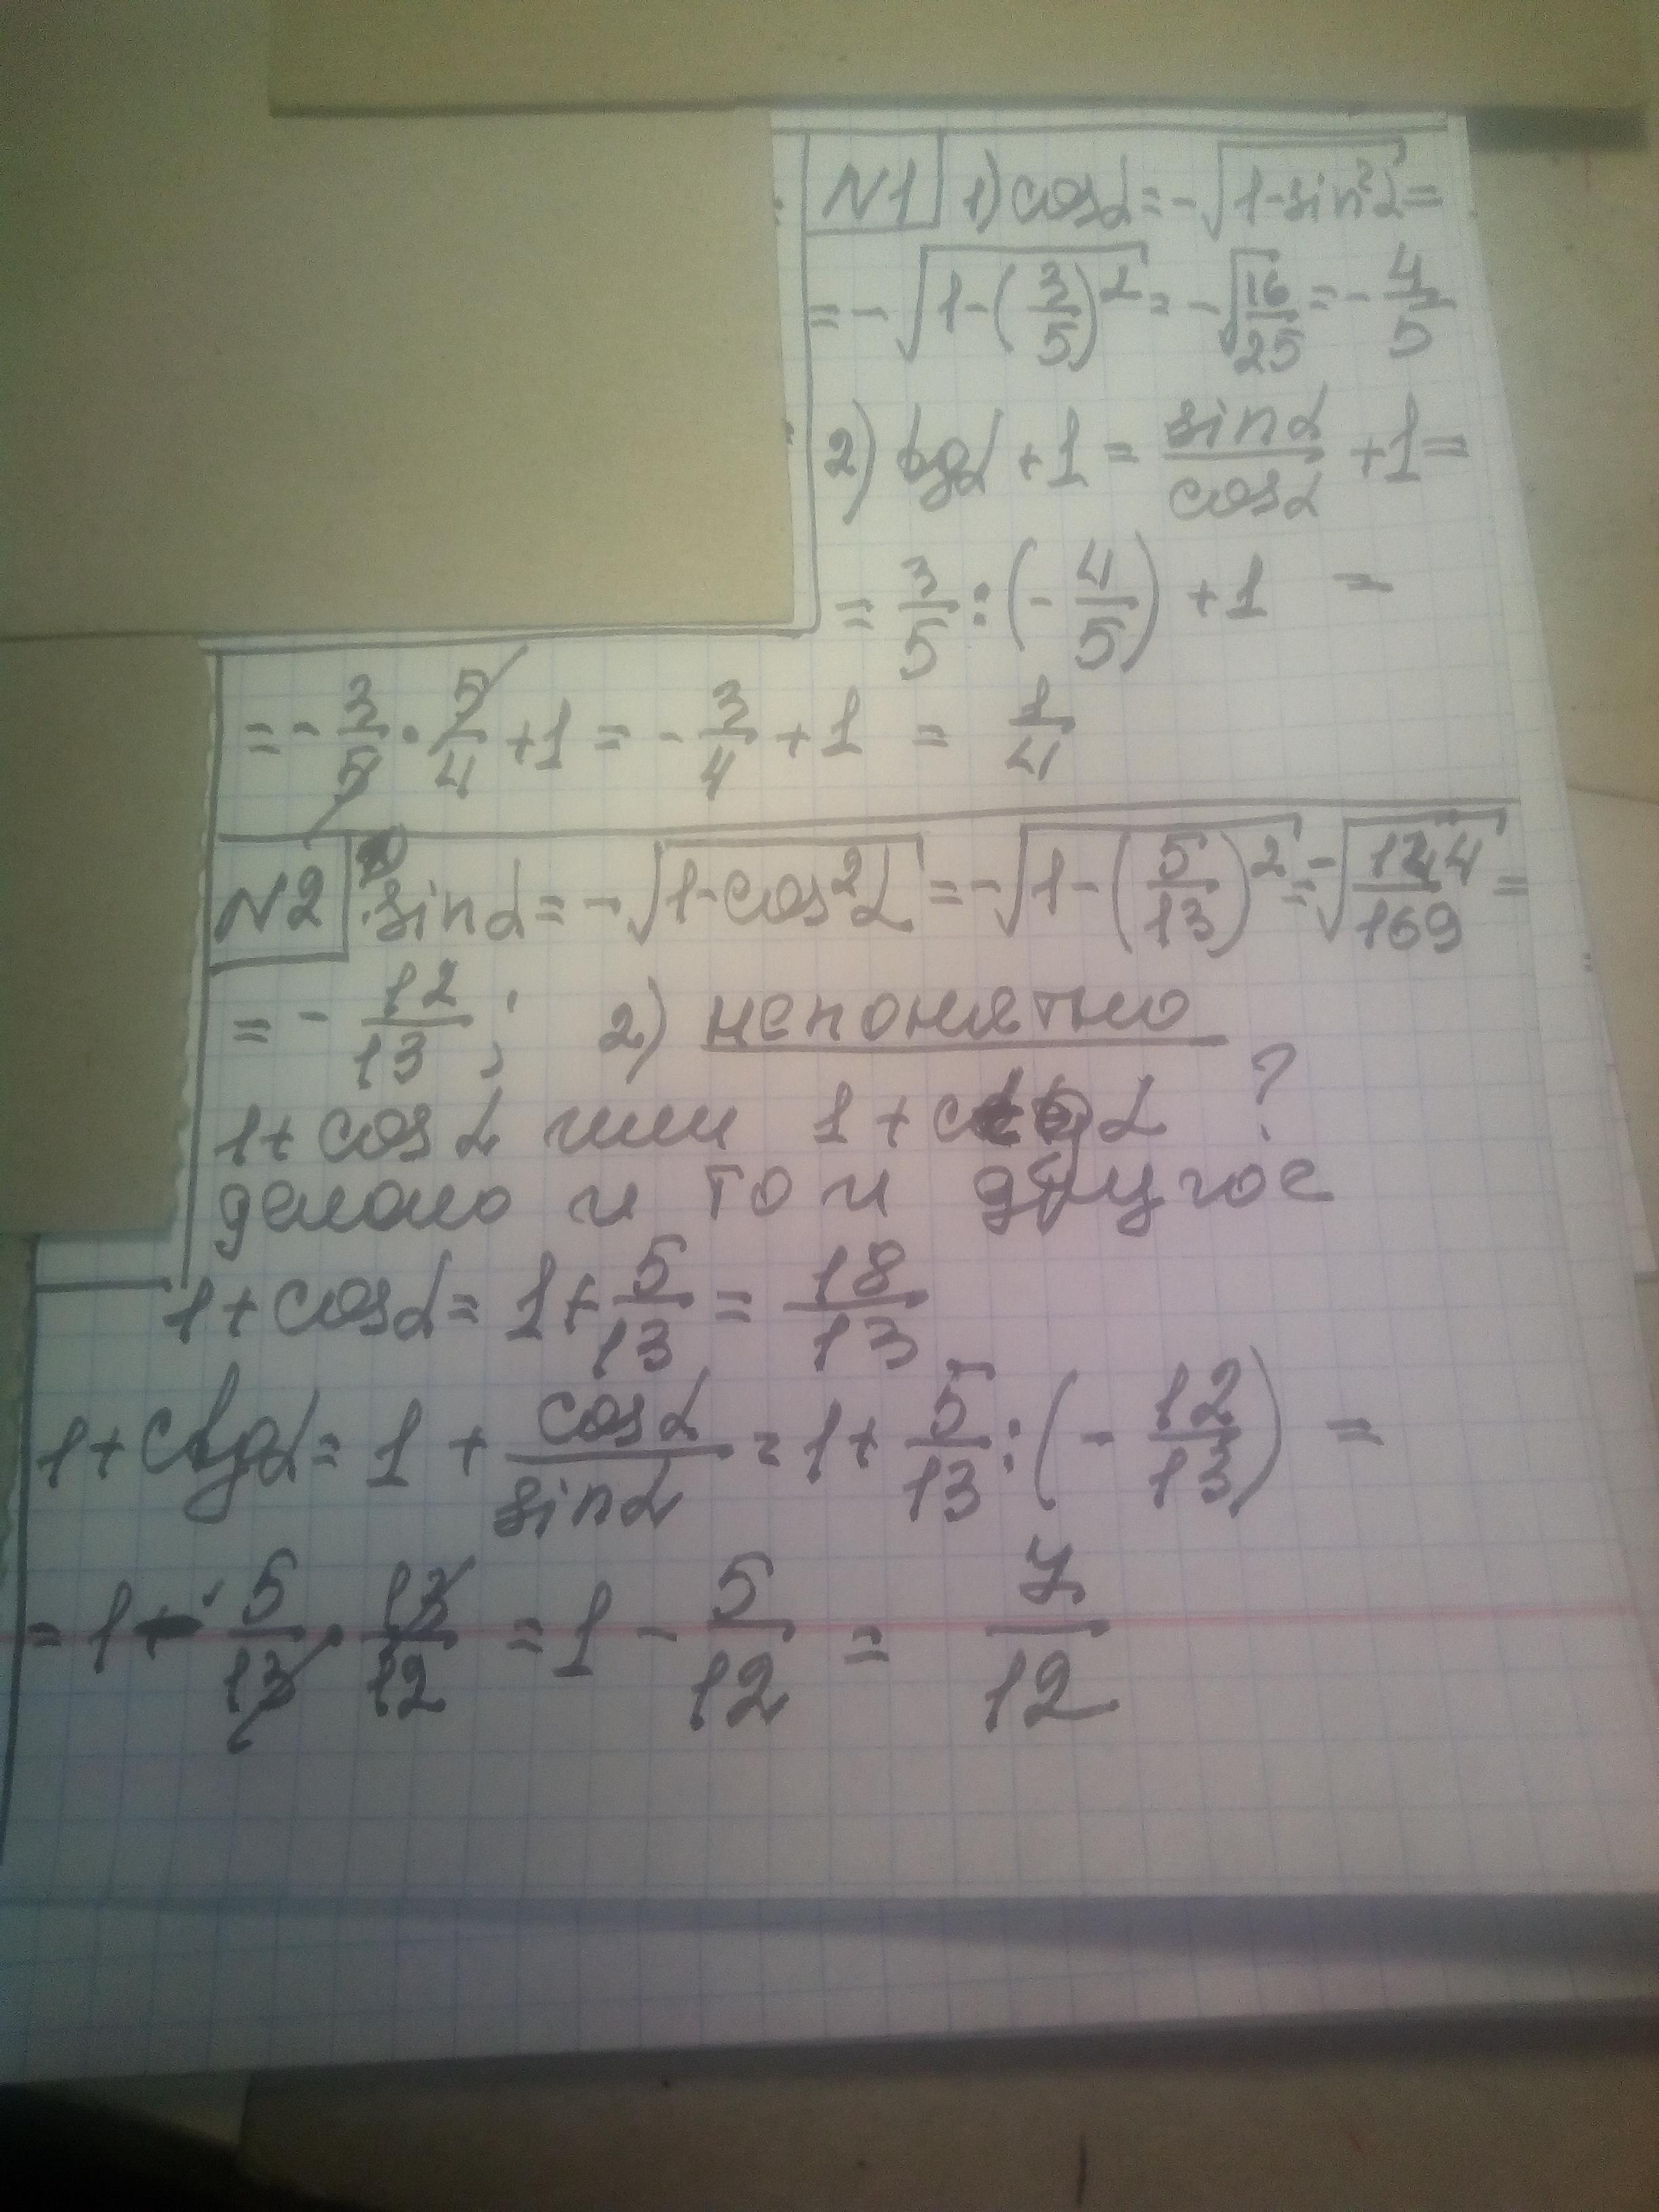 N1 1) cosα = -√(1-sin²α) =
= -√(1-(3/5)²) = -√(16/25) = -4/5
2) tgα + 1 = sinα/cosα + 1 =
= 3/5 : (-4/5) + 1 =
= - 3/5 · 5/4 + 1 = - 3/4 + 1 = 1/4
N2 sinα = -√(1-cos²α) = -√(1-(5/13)²) = -√(144/169) =
= - 12/13 ; 2) непонятно
1+cosα или 1+ctgα ?
делаю и то и другое
1+cosα = 1+5/13 = 18/13
1+ctgα = 1 + cosα/sinα = 1+ 5/13 : (- 12/13) =
= 1 - 5/13 · 13/12 = 1 - 5/12 = 7/12